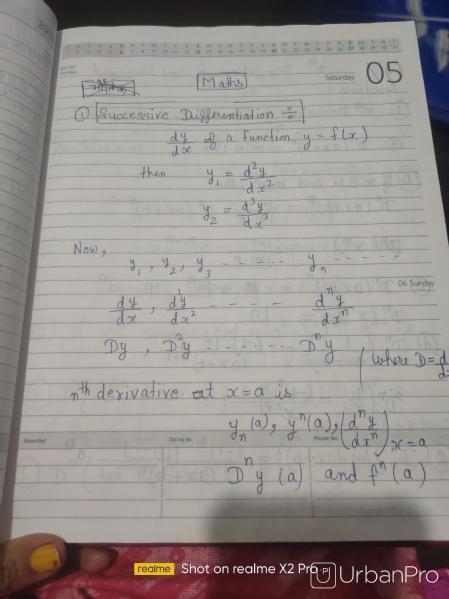 Saturday 05
Maths
① Successive Differentiation ÷
dy/dx of a function y = f(x)
then y₁ = d²y/dx²
y₂ = d³y/dx³
Now,
y₁, y₂, y₃ ------ yₙ ------
06 Sunday
dy/dx, d²y/dx² ---- dⁿy/dxⁿ
Dy, D²y ------- Dⁿy
(where D = d
nth derivative at x=a is
yₙ(a), yⁿ(a), (dⁿy/dxⁿ)x=a
Essential
Phone No.
Dⁿy (a) and fⁿ(a)
realme Shot on realme X2 Pro
UrbanPro